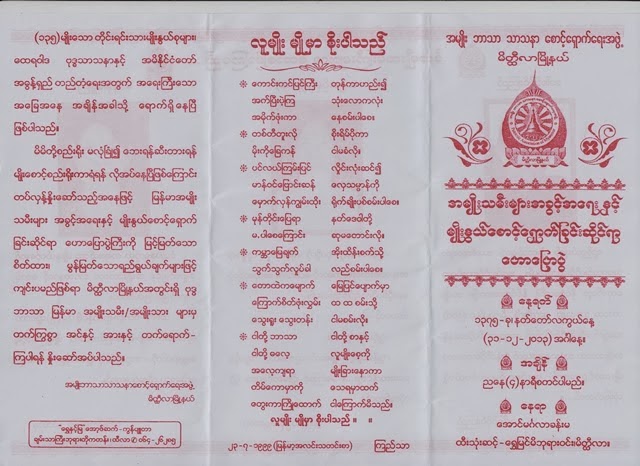 (၁၃၅)မျိုးသော တိုင်းရင်းသားမျိုးနွယ်စုများ၊
ထေရဝါဒ ဗုဒ္ဓသာသနာနှင့် အမိနိုင်ငံတော်
အခွန့်ရှည် တည်တံ့ရေးအတွက် အရေးကြီးသော
အခြေအနေ အချိန်အခါသို့ ရောက်ရှိနေပြီ
ဖြစ်ပါသည်။
မိမိတို့စည်းရိုး မလုံခြုံ၍ ဘေးရန်ဆီးတားရန်
မျိုးစောင့်စည်းရိုးကာရံရန် လိုအပ်နေပြီဖြစ်ကြောင်း
တပ်လှန့်နှိုးဆော်သည့်အနေဖြင့် မြန်မာအမျိုး
သမီးများ အခွင့်အရေးနှင့် မျိုးနွယ်စောင့်ရှောက်
ခြင်းဆိုင်ရာ ဟောပြောပွဲကြီးကို မြင့်မြတ်သော
စိတ်ထား၊ မွန်မြတ်သောရည်ရွယ်ချက်များဖြင့်
ကျင်းပမည်ဖြစ်ရာ မိတ္ထီလာမြို့နယ်အတွင်းရှိ ဗုဒ္ဓ
ဘာသာ မြန်မာ အမျိုးသမီး/အမျိုးသား များမှ
တက်ကြွစွာ အင်နှင့် အားနှင့် တက်ရောက်-
ကြပါရန် နှိုးဆော်အပ်ပါသည်။
အမျိုးဘာသာသာသနာစောင့်ရှောက်ရေးအဖွဲ့
မိတ္ထီလာမြို့နယ်။
လူမျိုး မျိုမှာ စိုးပါသည်
❊ ကောင်းကင်မြင်ကြီး တုန်ကာဟည်း၍
အက်ပြီးပဲ့ကြ သုံးလောကလုံး
အမိုက်ဖုံးကာ နေစမ်းပါစေ။
❊ တစ်တီတူးလို စိုးရိမ်ပိုကာ
မိုးကိုခြေကန် ငါမခံလို။
❊ ပင်လယ်ကြမ်းပြင် လှိုင်းလုံးဆင်၍
မာန်ဝင်မြောင်းဆန် လေ့သမ္ဗာန်ကို
မှောက်လှန်ကျွမ်းထိုး ရိုက်ချိုးပစ်စမ်းပါစေ။
❊ မုန်တိုင်းပြေရာ နတ်ဒေဝါတို့
မ,ပါစေကြောင်း ဆုမတောင်းလို။
❊ ကမ္ဘာမြေချက် အိုးထိန်းစက်သို့
သွက်သွက်လှုပ်ခါ လည်စမ်းပါစေ။
❊ တောထဲကမျောက် မြေပြင်ပျောက်မှာ
ကြောက်စိတ်ဖုံးလွှမ်း ထ ထ စမ်းသို့
သွေးရူး သွေးတန်း ငါမစမ်းလို။
❊ ငါတို့ ဘာသာ ငါတို့ စာနှင့်
ငါတို့ ဓလေ့ လူမျိုးစေ့ကို
အလေ့ကျရာ မျိုးခြားနေ‌ာကာ
တိမ်ကောမှာကို သေရမှာထက်
တွေးကာကြိုထောက် ငါကြောက်မိသည်။
လူမျိုး မျိုမှာ စိုးပါသည် ။ ။
၂၃-၇-၁၉၉၉ (မြန်မာ့အလင်းသတင်းစာ) ကြည်သာ
အမျိုး ဘာသာ သာသနာ စောင့်ရှောက်ရေးအဖွဲ့
မိတ္ထီလာမြို့နယ်
အမျိုးသမီးများအခွင့်အရေးနှင့်
မျိုးနွယ်စောင့်ရှောက်ခြင်းဆိုင်ရာ
ဟောပြောပွဲ
နေ့ရက်
၁၃၇၅-ခု၊ နတ်တော်လကွယ်နေ့
(၃၁-၁၂-၂၀၁၃) အင်္ဂါနေ့။
အချိန်
ညနေ(၄)နာရီစတင်ပါမည်။
နေရာ
အောင်မင်္ဂလာခန်းမ
ထီးသုံးဆင့်-ရွှေမြင်မိဘုရားဝင်း၊ မိတ္ထီလာ။